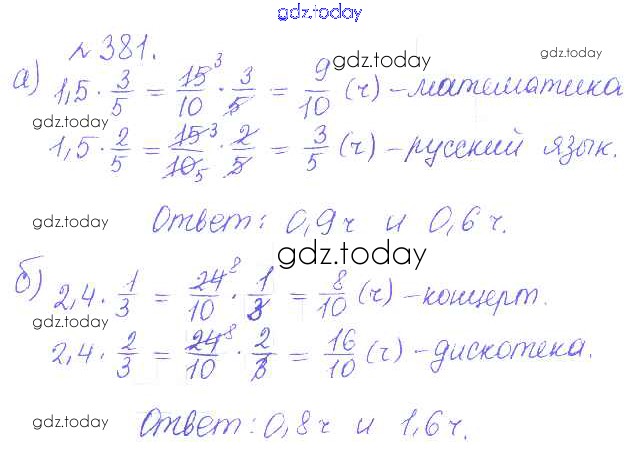 gdz.today
№ 381.
gdz.today gdz.today
а) 1,5 · 3/5 = 15³/10 · 3/5 = 9/10 (ч) – математика
gdz.today
1,5 · 2/5 = 15³/10₅ · 2/5 = 3/5 (ч) – русский язык.
gdz.today gdz.today
Ответ: 0,9 ч и 0,6 ч.
gdz.today
б) 2,4 · 1/3 = 24⁸/10 · 1/3 = 8/10 (ч) – концерт.
gdz.today gdz.today
2,4 · 2/3 = 24⁸/10 · 2/3 = 16/10 (ч) – дискотека.
gdz.today gdz.today
Ответ: 0,8 ч и 1,6 ч.